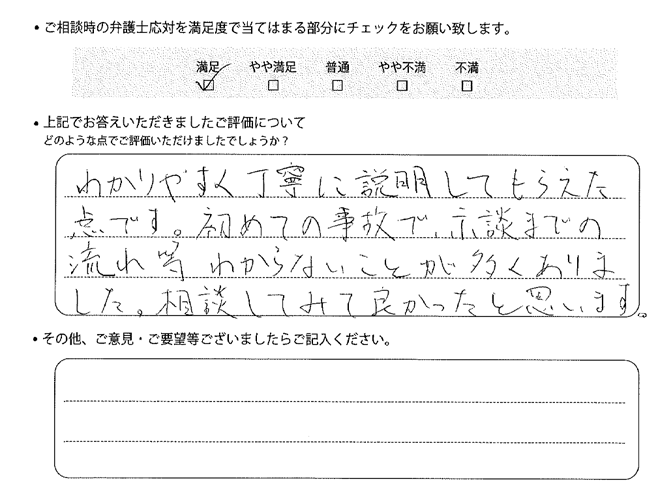 • ご相談時の弁護士応対を満足度で当てはまる部分にチェックをお願い致します。
満足 やや満足 普通 やや不満 不満
☑ □ □ □ □
• 上記でお答えいただきましたご評価について
どのような点でご評価いただけましたでしょうか？
わかりやすく丁寧に説明してもらえた
点です。初めての事故で、示談までの
流れ等わからないことが多くありま
した。相談してみて良かったと思います。
• その他、ご意見・ご要望等ございましたらご記入ください。